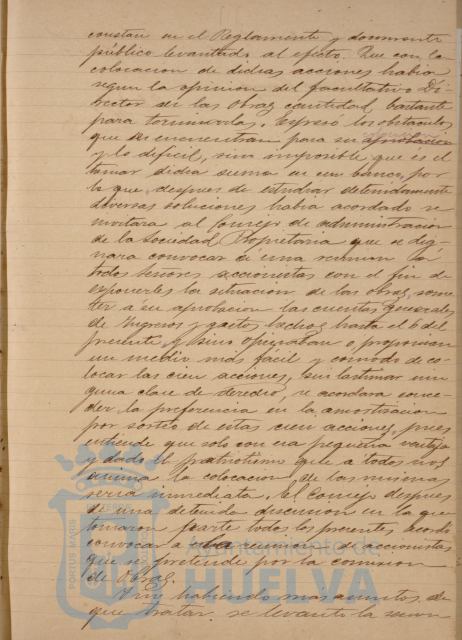 constan en el Reglamento y documento
público levantado al efecto. Que con la
colocacion de dichas acciones habia
segun la opinion del facultativo Di-
rector de las Obras cantidad, bastante
para terminarla. Expresó los obstaculos
que se encuentran para su aprobacion
y lo dificil, sino imposible que es el
tomar dicha suma en un banco, por
lo que, despues de estudiar detenidamente
diversas soluciones habia acordado se
invitara al Consejo de administracion
de la Sociedad Propietaria que se dig-
nara convocar a una reunion á
todos Señores accionistas con el fin de
esponerles la situacion de las obras, some-
ter a su aprobacion las cuentas generales
de Ingresos y gastos hechos hasta el 6 del
presente, y sino opinaban o proponian
un medio más facil y comodo de co-
locar las cien acciones, sin lastimar nin-
guna clase de derecho, se acordara conce-
der la preferencia en la amortizacion
por sorteo de estas cien acciones, pues
entiende que solo con esa pequeña ventaja
y dado el patriotismo que a todos nos
anima la colocacion de las mismas
seria inmediata. El Consejo despues
de una detenida discusion en la que
tomaron parte todos los presentes acordó
convocar a la reunion de accionistas
que se pretende por la comision
de Obras.
Y no habiendo mas asuntos de
que tratar se levantó la sesion
PORTUS MARIS
Ayuntamiento de
HUELVA